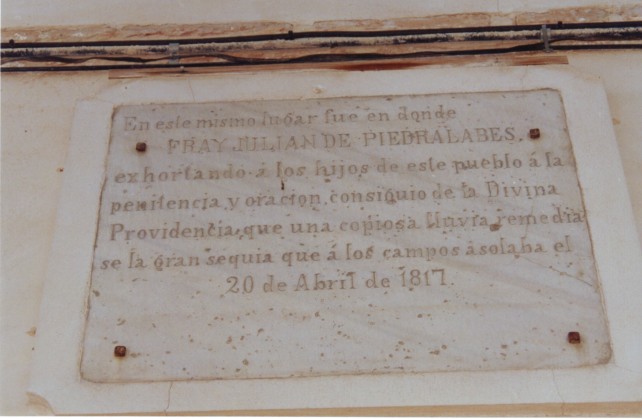 En este mismo lugar fue en donde
FRAY JULIAN DE PIEDRALABES,
exhortando á los hijos de este pueblo á la
penitencia y oracion, consiguio de la Divina
Providencia, que una copiosa lluvia remedia
se la gran sequia que á los campos asolaba el
20 de Abril de 1817.